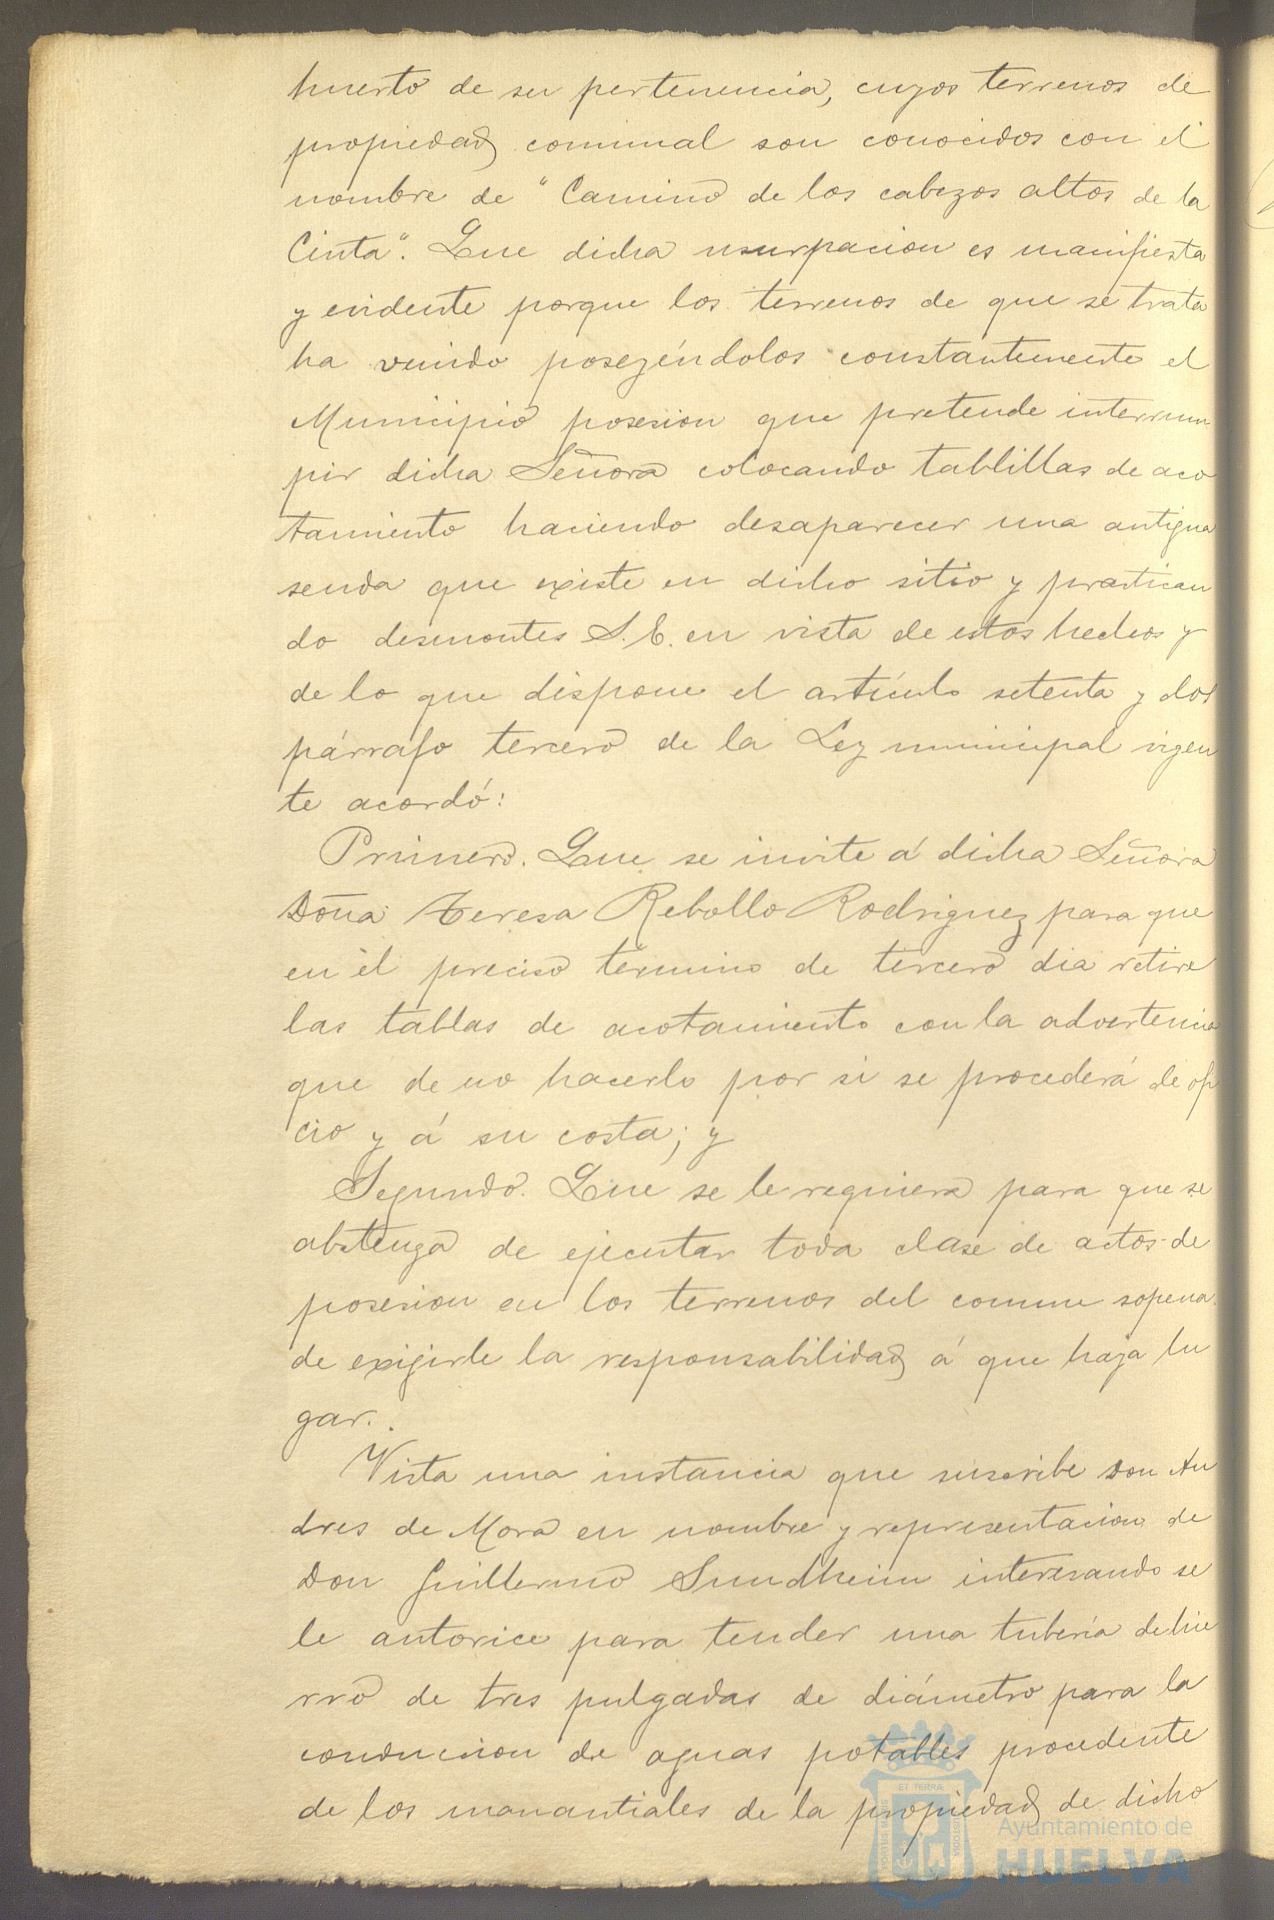 huerto de su pertenencia, cuyos terrenos de
propiedad comunal son conocidos con el
nombre de "Camino de los cabezos altos de la
Cinta". Que dicha usurpacion es manifiesta
y evidente porque los terrenos de que se trata
ha venido poseyéndolos constantemente el
Municipio posesion que pretende interrum
pir dicha Señora colocando tablillas de aco
tamiento haciendo desaparecer una antigua
senda que existe en dicho sitio y practican
do desmontes S.E. en vista de estos hechos y
de lo que dispone el artículo setenta y dos
párrafo tercero de la Ley municipal vigen
te acordó:
Primero. Que se invite á dicha Señora
Doña Teresa Rebollo Rodriguez para que
en el preciso termino de tercero dia retire
las tablas de acotamiento con la advertencia
que de no hacerlo por si se procederá de ofi
cio y á su costa; y
Segundo. Que se le requiera para que se
abstenga de ejecutar toda clase de actos de
posesion en los terrenos del comun sopena
de exigirle la responsabilidad á que haya lu
gar.
Vista una instancia que suscribe Don An
dres de Mora en nombre y representacion de
Don Guillermo Sundheim interesando se
le autorice para tender una tubería de hie
rro de tres pulgadas de diámetro para la
conduccion de aguas potables procedente
de los manantiales de la propiedad de dicho
ET TERRAE
Ayuntamiento de
HUELVA